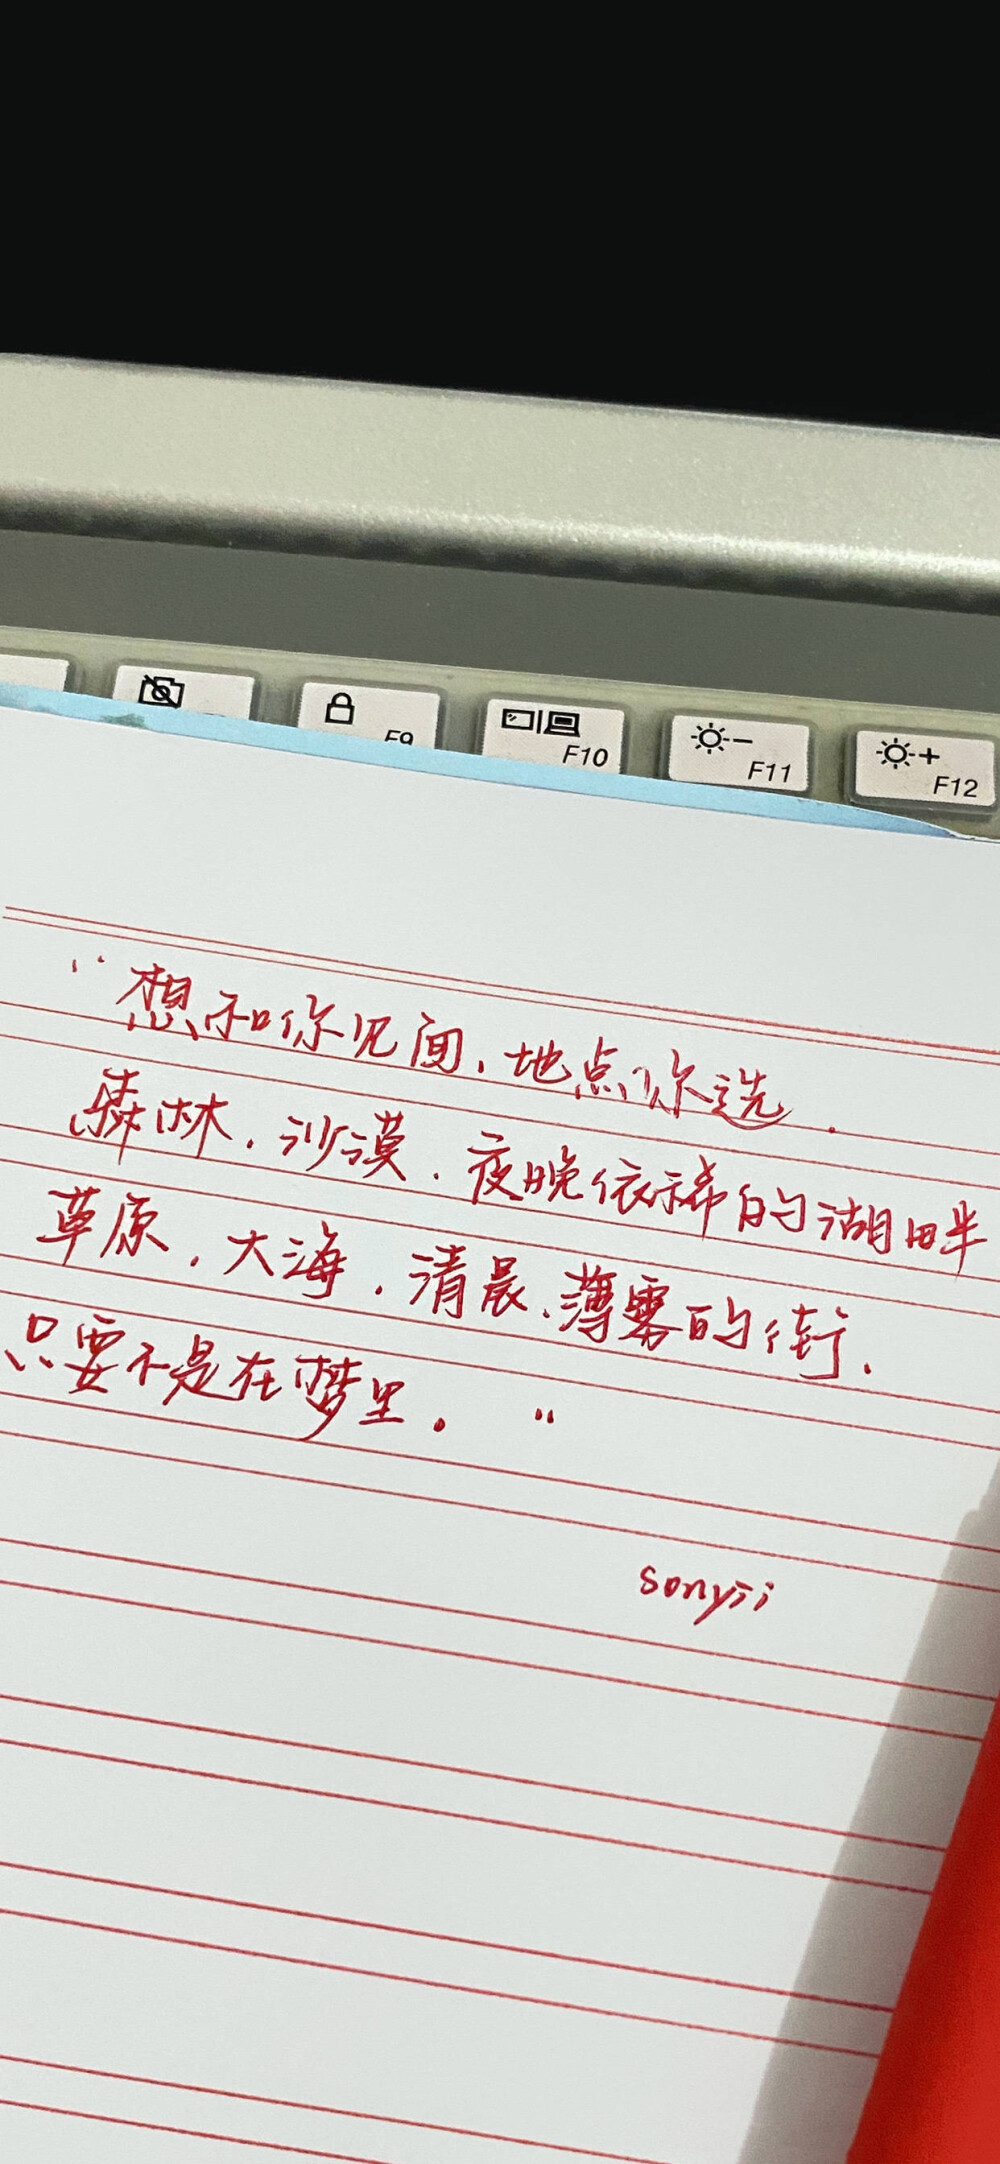 F9
F10
F11
F12
“想和你见面,地点你选.
森林.沙漠.夜晚依稀的湖畔
草原.大海.清晨、薄雾的街.
只要不是在梦里。”